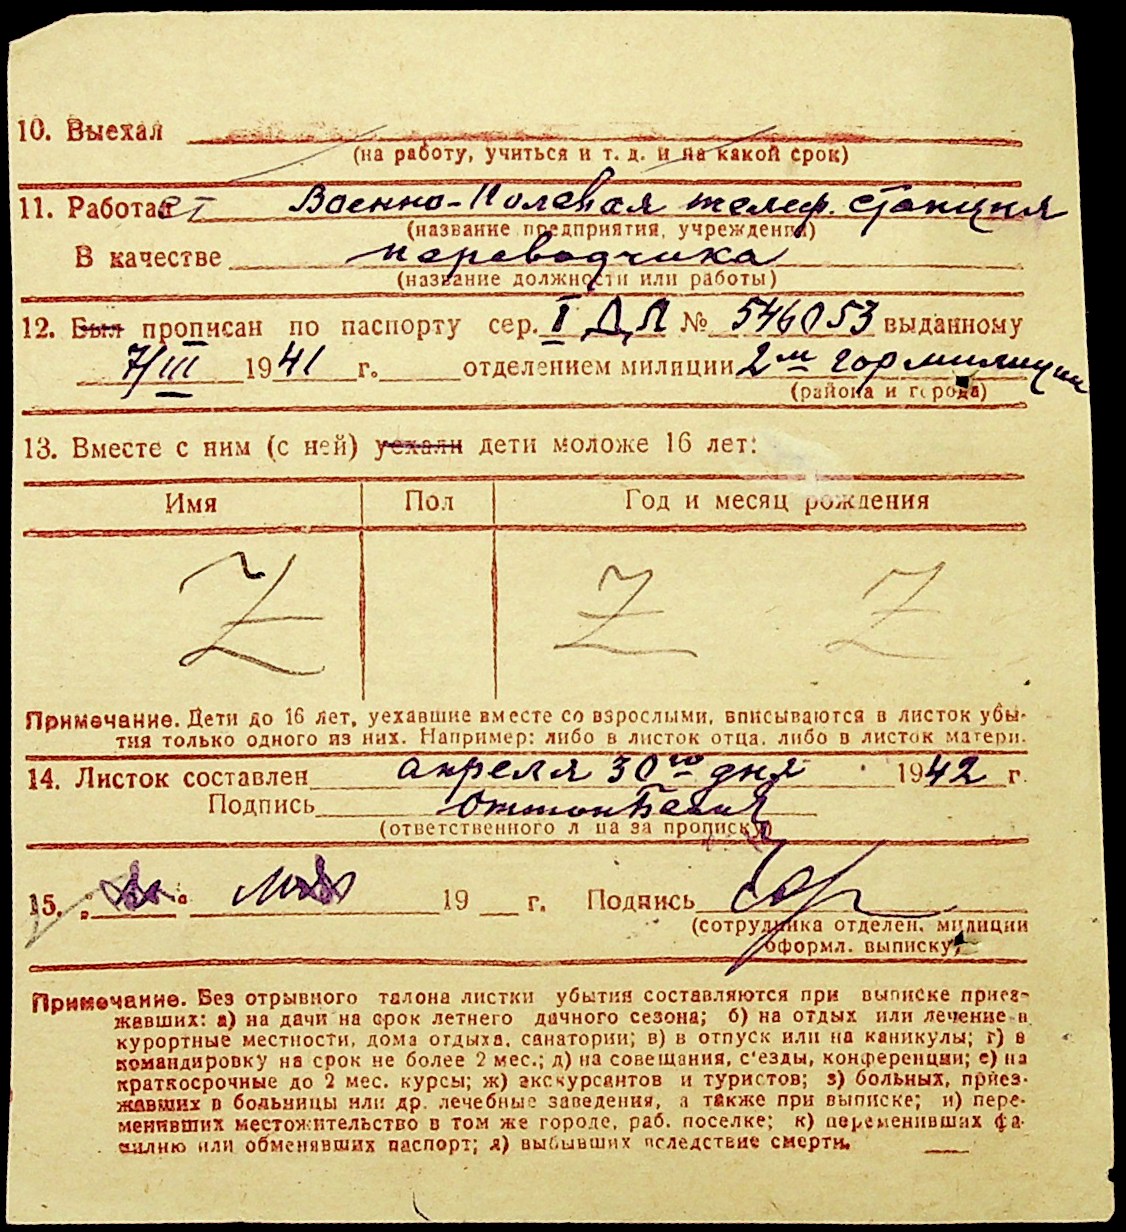 10. Выехал
(на работу, учиться и т. д. и на какой срок)
11. Работает Военно-Полевая телеф. станция
(название предприятия, учреждения)
В качестве переводчика
(название должности или работы)
12. Был прописан по паспорту сер. I ДЛ № 546053 выданному
7/III 1941 г. отделением милиции 2м гор милиции
(района и города)
13. Вместе с ним (с ней) уехали дети моложе 16 лет:
Имя Пол Год и месяц рождения
Z Z Z
Примечание. Дети до 16 лет, уехавшие вместе со взрослыми, вписываются в листок убы-
тия только одного из них. Например: либо в листок отца, либо в листок матери.
14. Листок составлен апреля 30го дня 1942 г.
Подпись
(ответственного лица за прописку)
15. 19 г. Подпись
(сотрудника отделен. милиции
оформл. выписку)
Примечание. Без отрывного талона листки убытия составляются при выписке приез-
жавших: а) на дачи на срок летнего дачного сезона; б) на отдых или лечение в
курортные местности, дома отдыха, санатории; в) в отпуск или на каникулы; г) в
командировку на срок не более 2 мес.; д) на совещания, с'езды, конференции; е) на
краткосрочные до 2 мес. курсы; ж) экскурсантов и туристов; з) больных, приез-
жавших в больницы или др. лечебные заведения, а также при выписке; и) пере-
менивших местожительство в том же городе, раб. поселке; к) переменивших фа-
милию или обменявших паспорт; л) выбывших вследствие смерти.